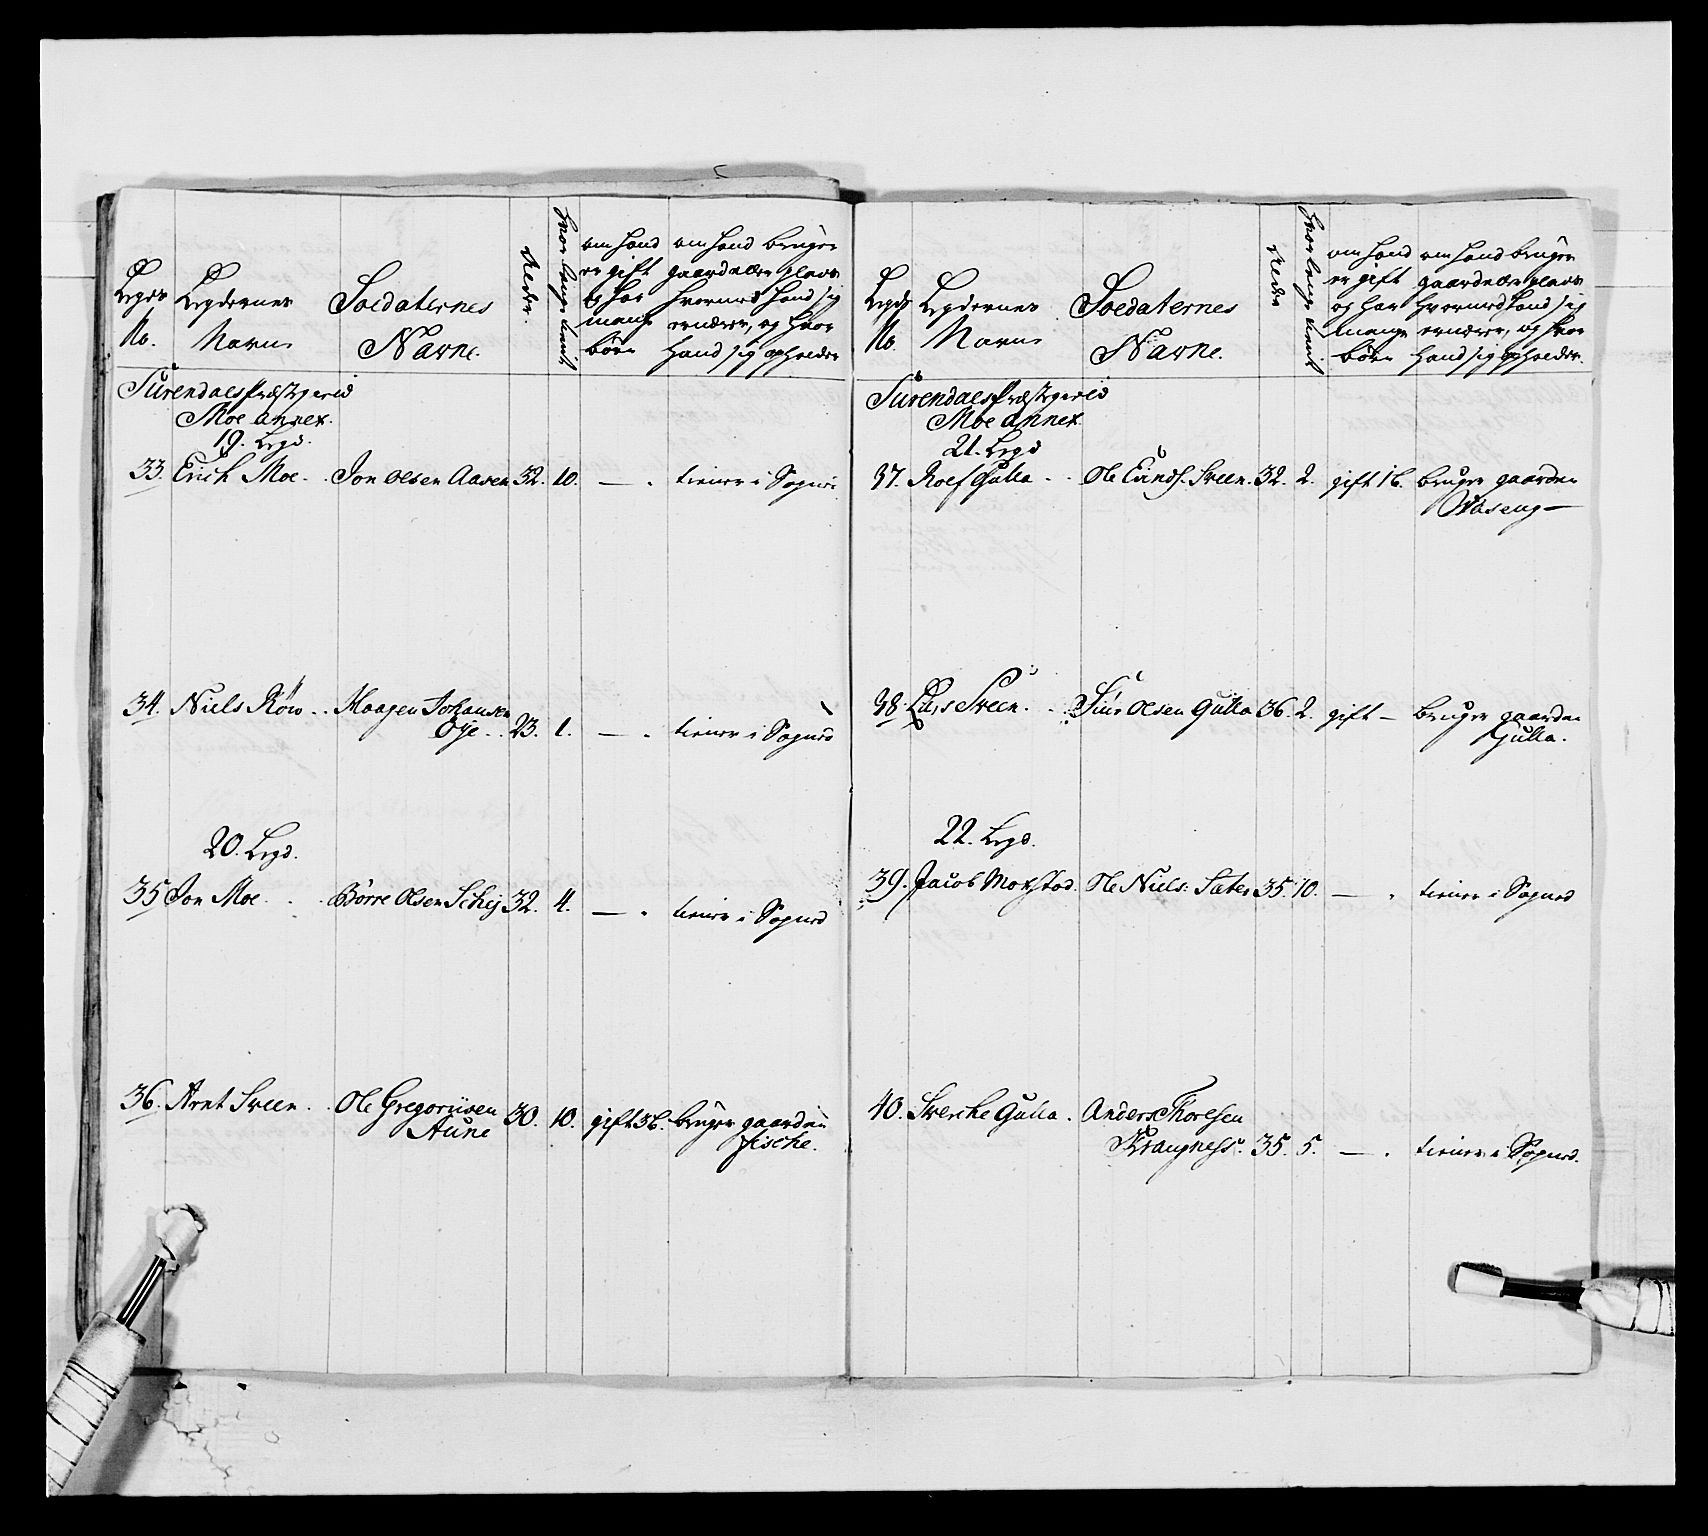 Legds No.
Legdernes Navne
Soldaternes Navne.
Alder.
hvor lenge tient
om hand er gift og har mange børn
om hand bruger gaard eller plads hvormed hand sig ernærer, og hvor hand sig opholder
Surendals Præstegield
Moe Annex.
19. Legd.
33. Erich Moe Jon Olsen Aasen 32. 10. — . tiener i Sognet
34. Niels Røw Haagen Johansen
Øye 23. 1. — . tiener i Sognet
20. Legd.
35 Jon Moe Børre Olsen Schej 32. 4. — . tiener i Sognet
36. Arnt Sveen Ole Gregoriisen
Aune 30. 10. gift 3 b. bruger gaarden
Fische.
Legds No.
Legdernes Navne
Soldaternes Navne.
Alder
hvor lenge tient
om hand er gift og har mange børn
om hand bruger gaard eller plads hvormed hand sig ernærer, og hvor hand sig opholder.
Surendals Præstegield
Moe Annex.
21. Legd
37. Roel Gulla Ole Einds. Sveen 32. 2. gift 1 b. bruger gaarden
Waseng
38. Lars Sveen. Siur Olsen Gulla 36. 2. gift — bruger gaarden
Gulla.
22. Legd.
39. Jacob Mokstad. Ole Niels. Sæter 35. 10. — . tiener i Sognet
40. Sverche Gulla. Anders Thoresen
Krangness. 35. 5. — . tiener i Sognet.